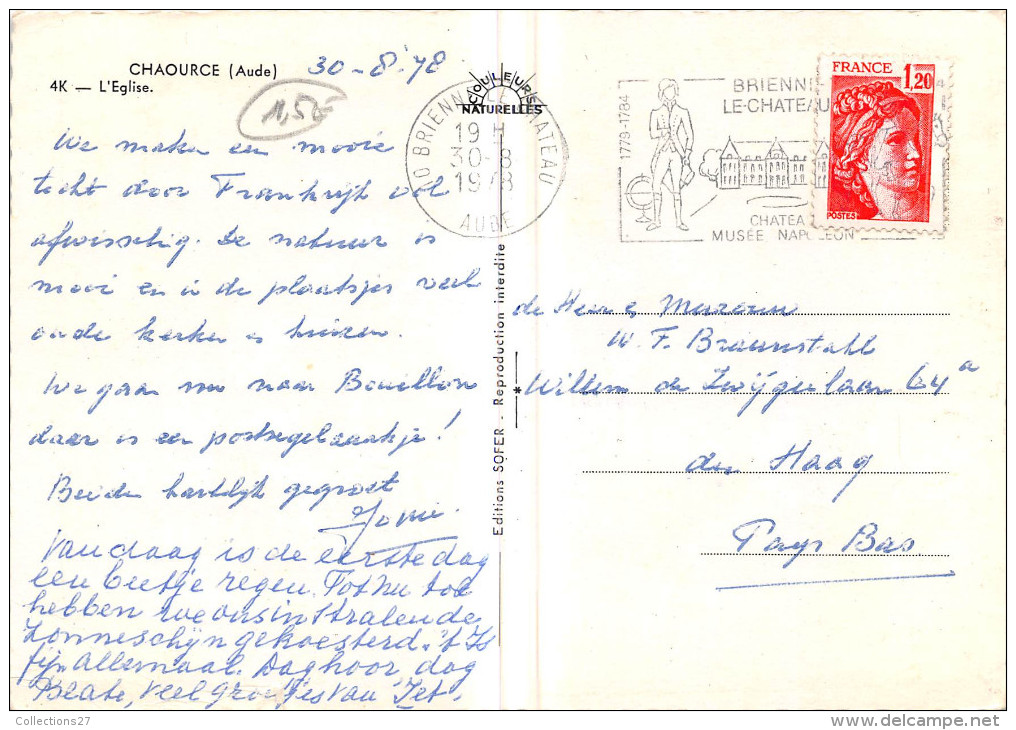 CHAOURCE (Aude)
4K — L'Eglise.
30-8-'78
1,50
COULEURS
NATURELLES
10 BRIENNE LE CHATEAU
19 H
30-8
1978
AUDE
1779-1784
BRIENNE
LE-CHATEAU
CHATEA
MUSÉE NAPOLEON
FRANCE 1,20
POSTES
We maken een mooie
tocht door Frankrijk vol
afwisseling. De natuur is
mooi en in de plaatsjes veel
oude kerken en huizen.
We gaan nu naar Bouillon
daar is een postzegelzaakje!
Beiden hartelijk gegroet
Vandaag is de eerste dag
een beetje regen. Tot nu toe
hebben we ons in stralende
zonneschijn gekoesterd. 't Is
fijn allemaal. Dag hoor, dag
Beate, veel groetjes van Jet.
Editions SOFER - Reproduction interdite
de Heer & Mevrouw
W. F. Braunstahl
Willem de Zwijgerlaan 64a
den Haag
Pays Bas
Collections27
delcampe.net